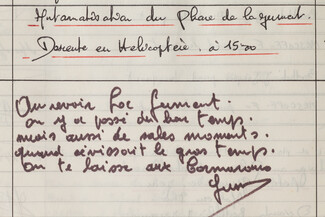 Automatisation du Phare de la Jument.
Descente en Hélicoptère. à 15.00
Au revoir Loc Jument.
on y a passé du bon temps.
mais aussi de sales moments.
quand sévissait le gros temps.
On te laisse aux Cormorans